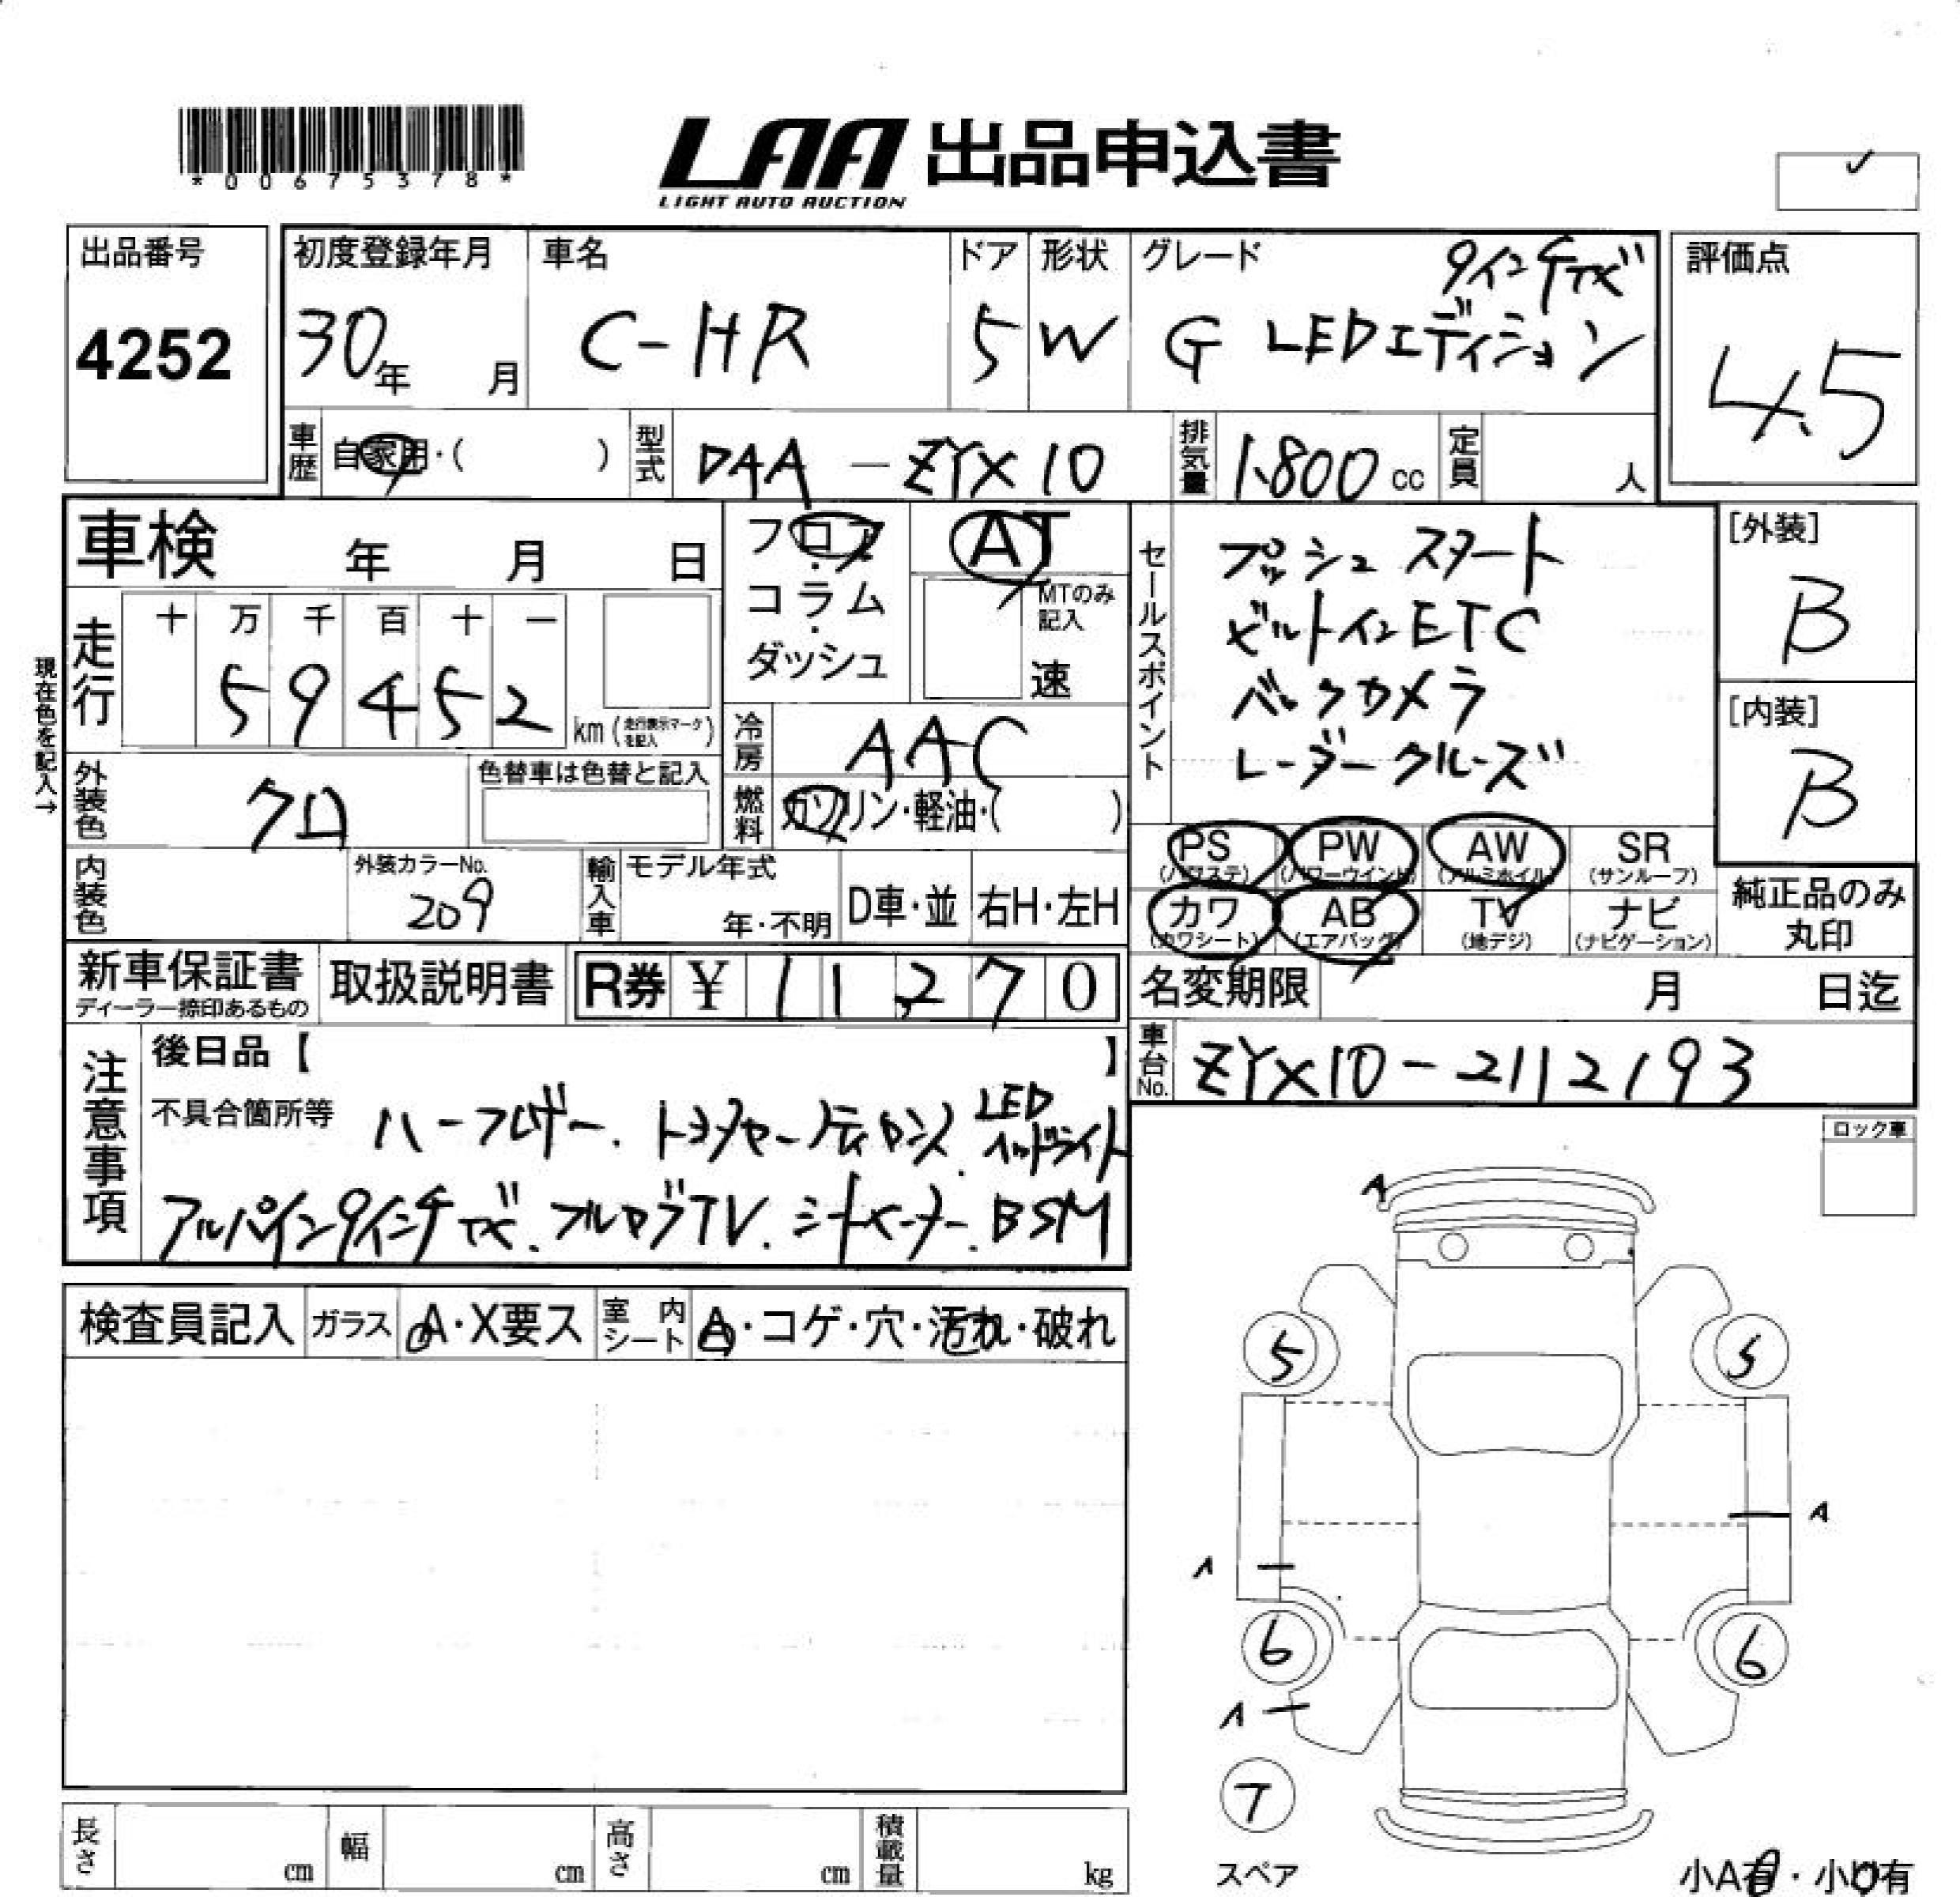 *00675378*
LAA 出品申込書
LIGHT AUTO AUCTION
✓
出品番号
4252
初度登録年月
30年 月
車名
C-HR
ドア
5
形状
W
グレード
9インチナビ
G LEDエディション
評価点
4.5
車歴 自家用・( )
型式 DAA-ZYX10
排気量 1.800cc
定員 人
車検 年 月 日
フロア・コラム・ダッシュ
AT
MTのみ記入
速
現在色を記入→
走行
十 万 千 百 十 一
5 9 4 5 2
km(走行表示マークを記入)
冷房 AAC
燃料 ガソリン・軽油・( )
外装色 クロ
色替車は色替と記入
内装色
外装カラーNo.
209
輸入車
モデル年式
年・不明
D車・並
右H・左H
セールスポイント
プッシュスタート
ビルトインETC
バックカメラ
レーダークルーズ
[外装]
B
[内装]
B
PS (パワステ)
PW (パワーウインド)
AW (アルミホイル)
SR (サンルーフ)
カワ (カワシート)
AB (エアバッグ)
TV (地デジ)
ナビ (ナビゲーション)
純正品のみ
丸印
新車保証書
ディーラー捺印あるもの
取扱説明書
R券 ¥ 11,270
名変期限 月 日迄
車台No. ZYX10-2112193
注意事項
後日品【 】
不具合箇所等 ハーフレザー. トヨタセーフティセンス. LEDヘッドライト
アルパイン9インチナビ. フルセグTV. シートヒーター. BSM
ロック車
検査員記入
ガラス A・X要ス
室内シート A・コゲ・穴・汚れ・破れ
A
5 5
A
A
6 6
A
T
スペア
長さ cm
幅 cm
高さ cm
積載量 kg
小A有・小U有